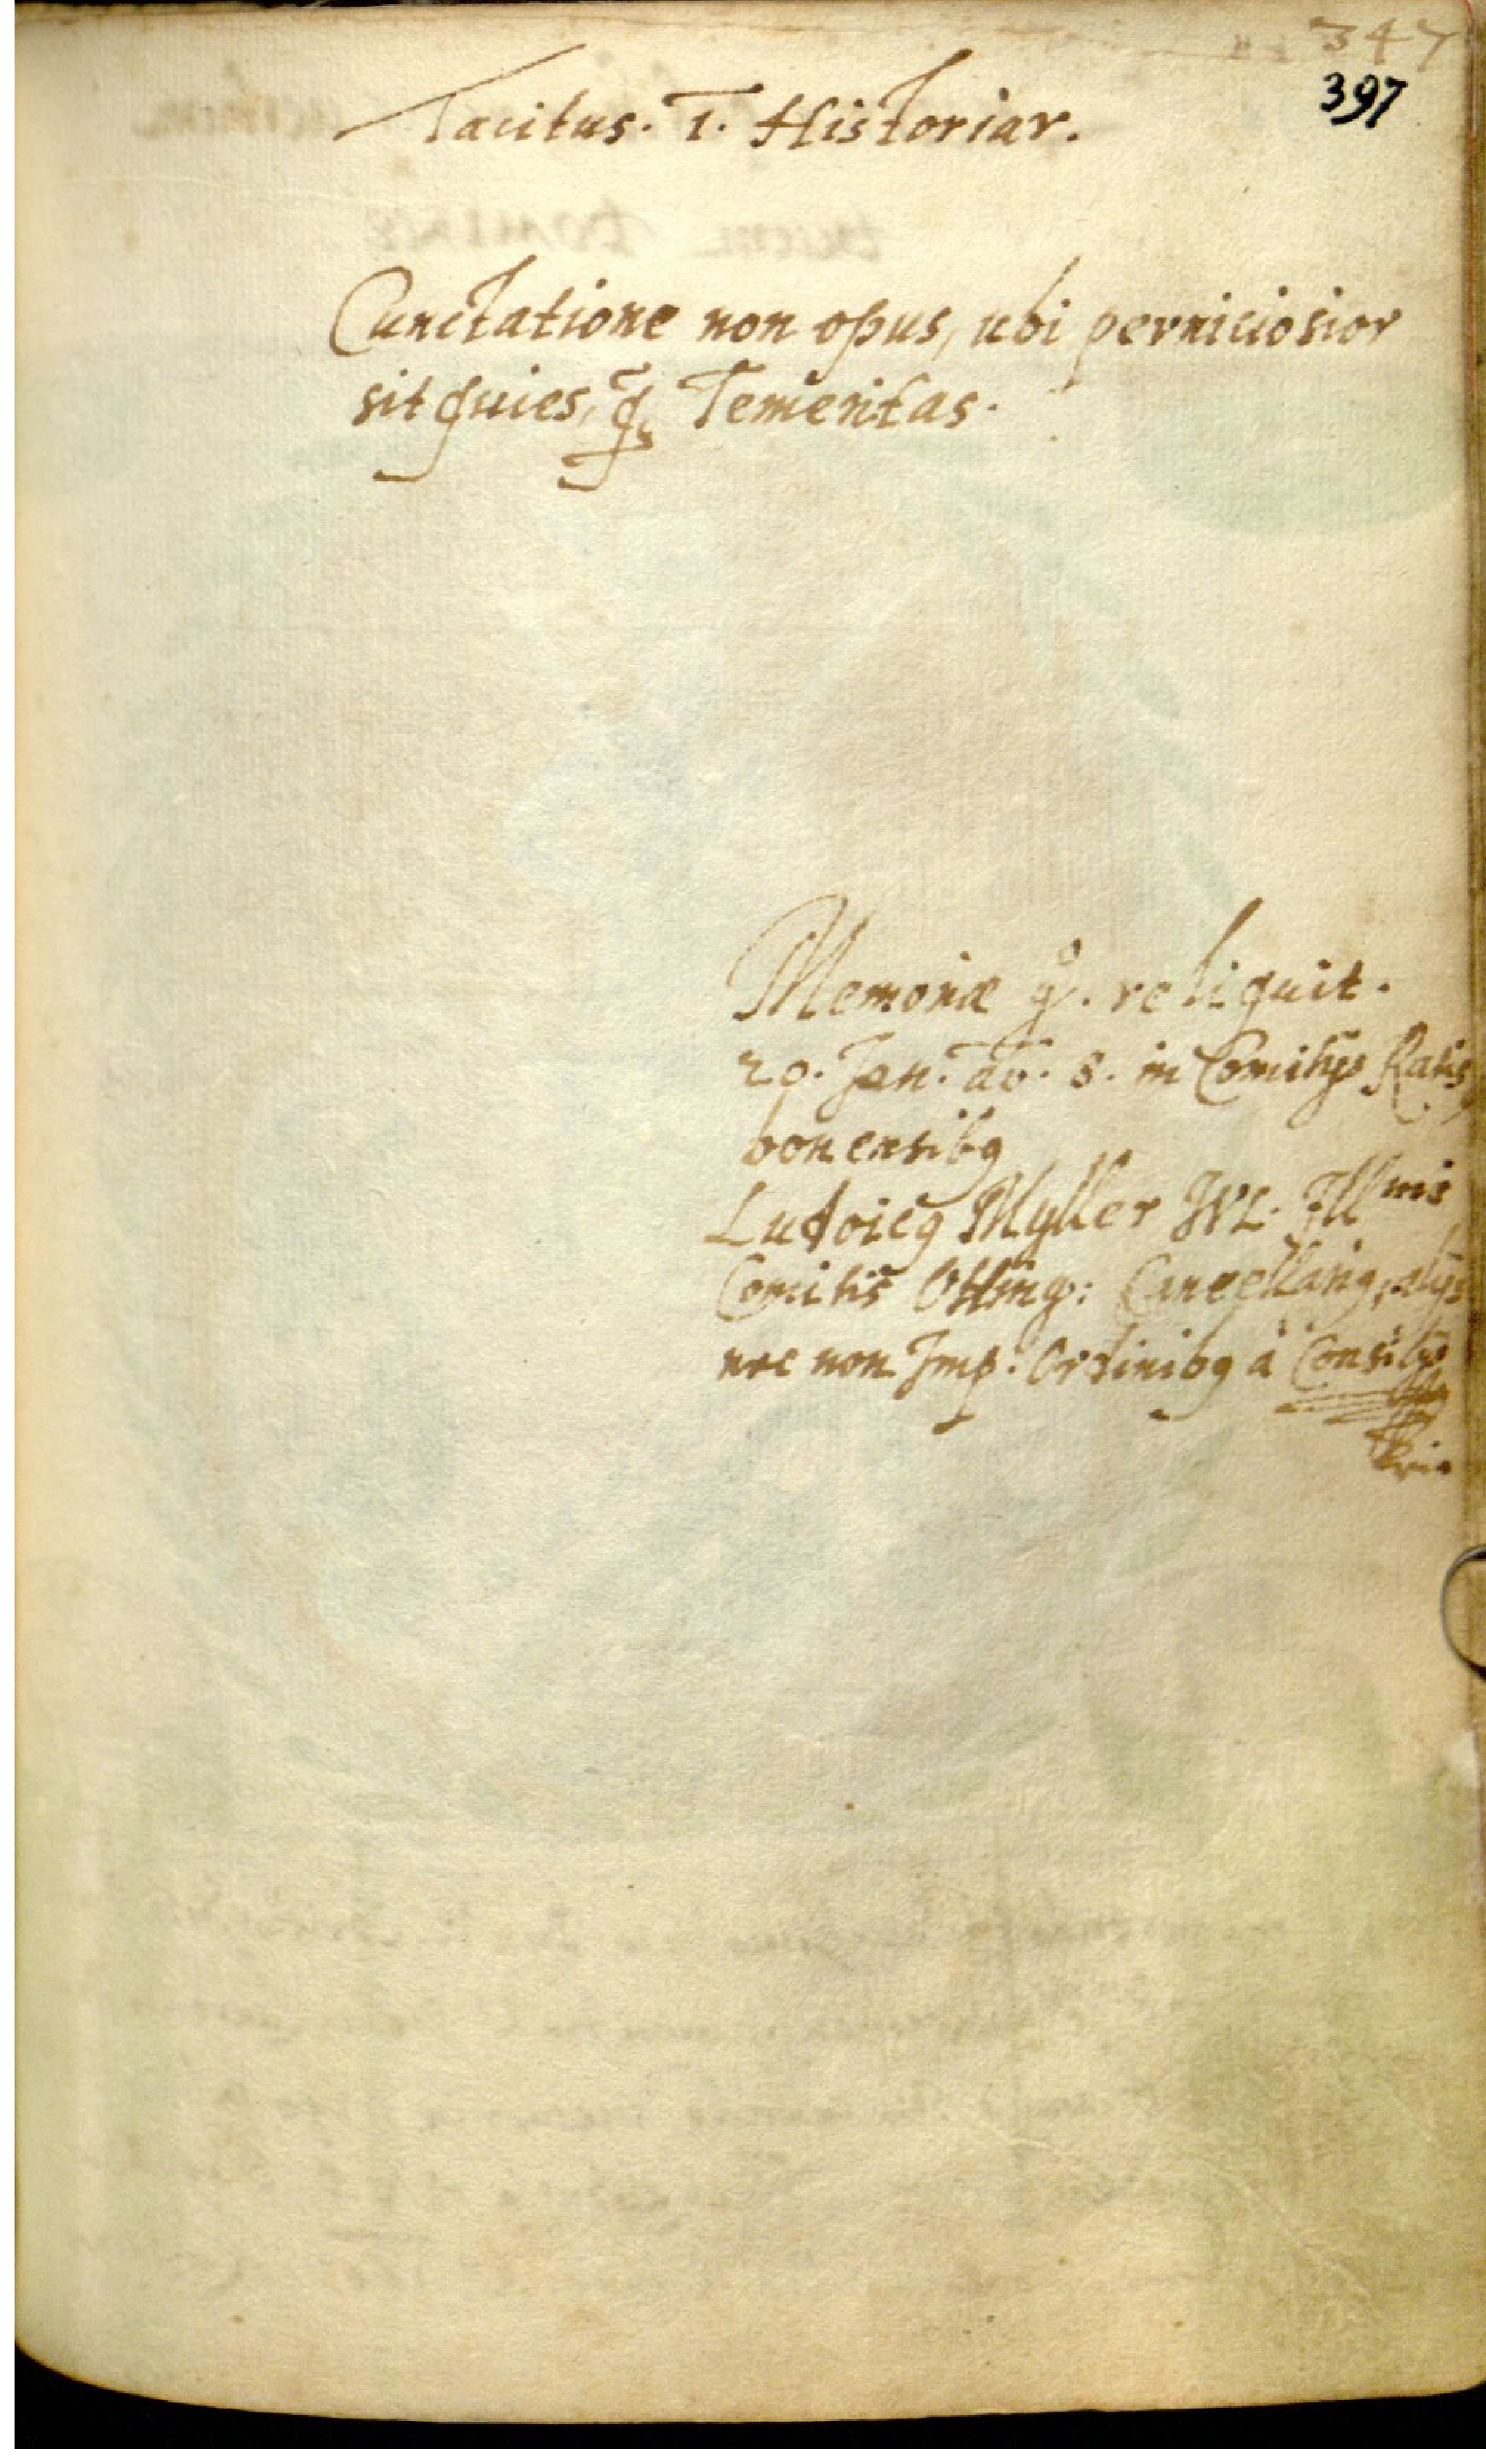 347
397
Tacitus. 1. Historiar.
Cunctatione non opus, ubi perniciosior
sit quies, q̃ Temeritas.
Memoriæ reliquit.
20. Jan. 8. in Comitijs Ratis
bonensibꝰ
Ludoicꝰ Myller Illmis
Comitis Otting: Cancellariꝰ, alijs
nec non Imp: Ordinibꝰ à Consilijs